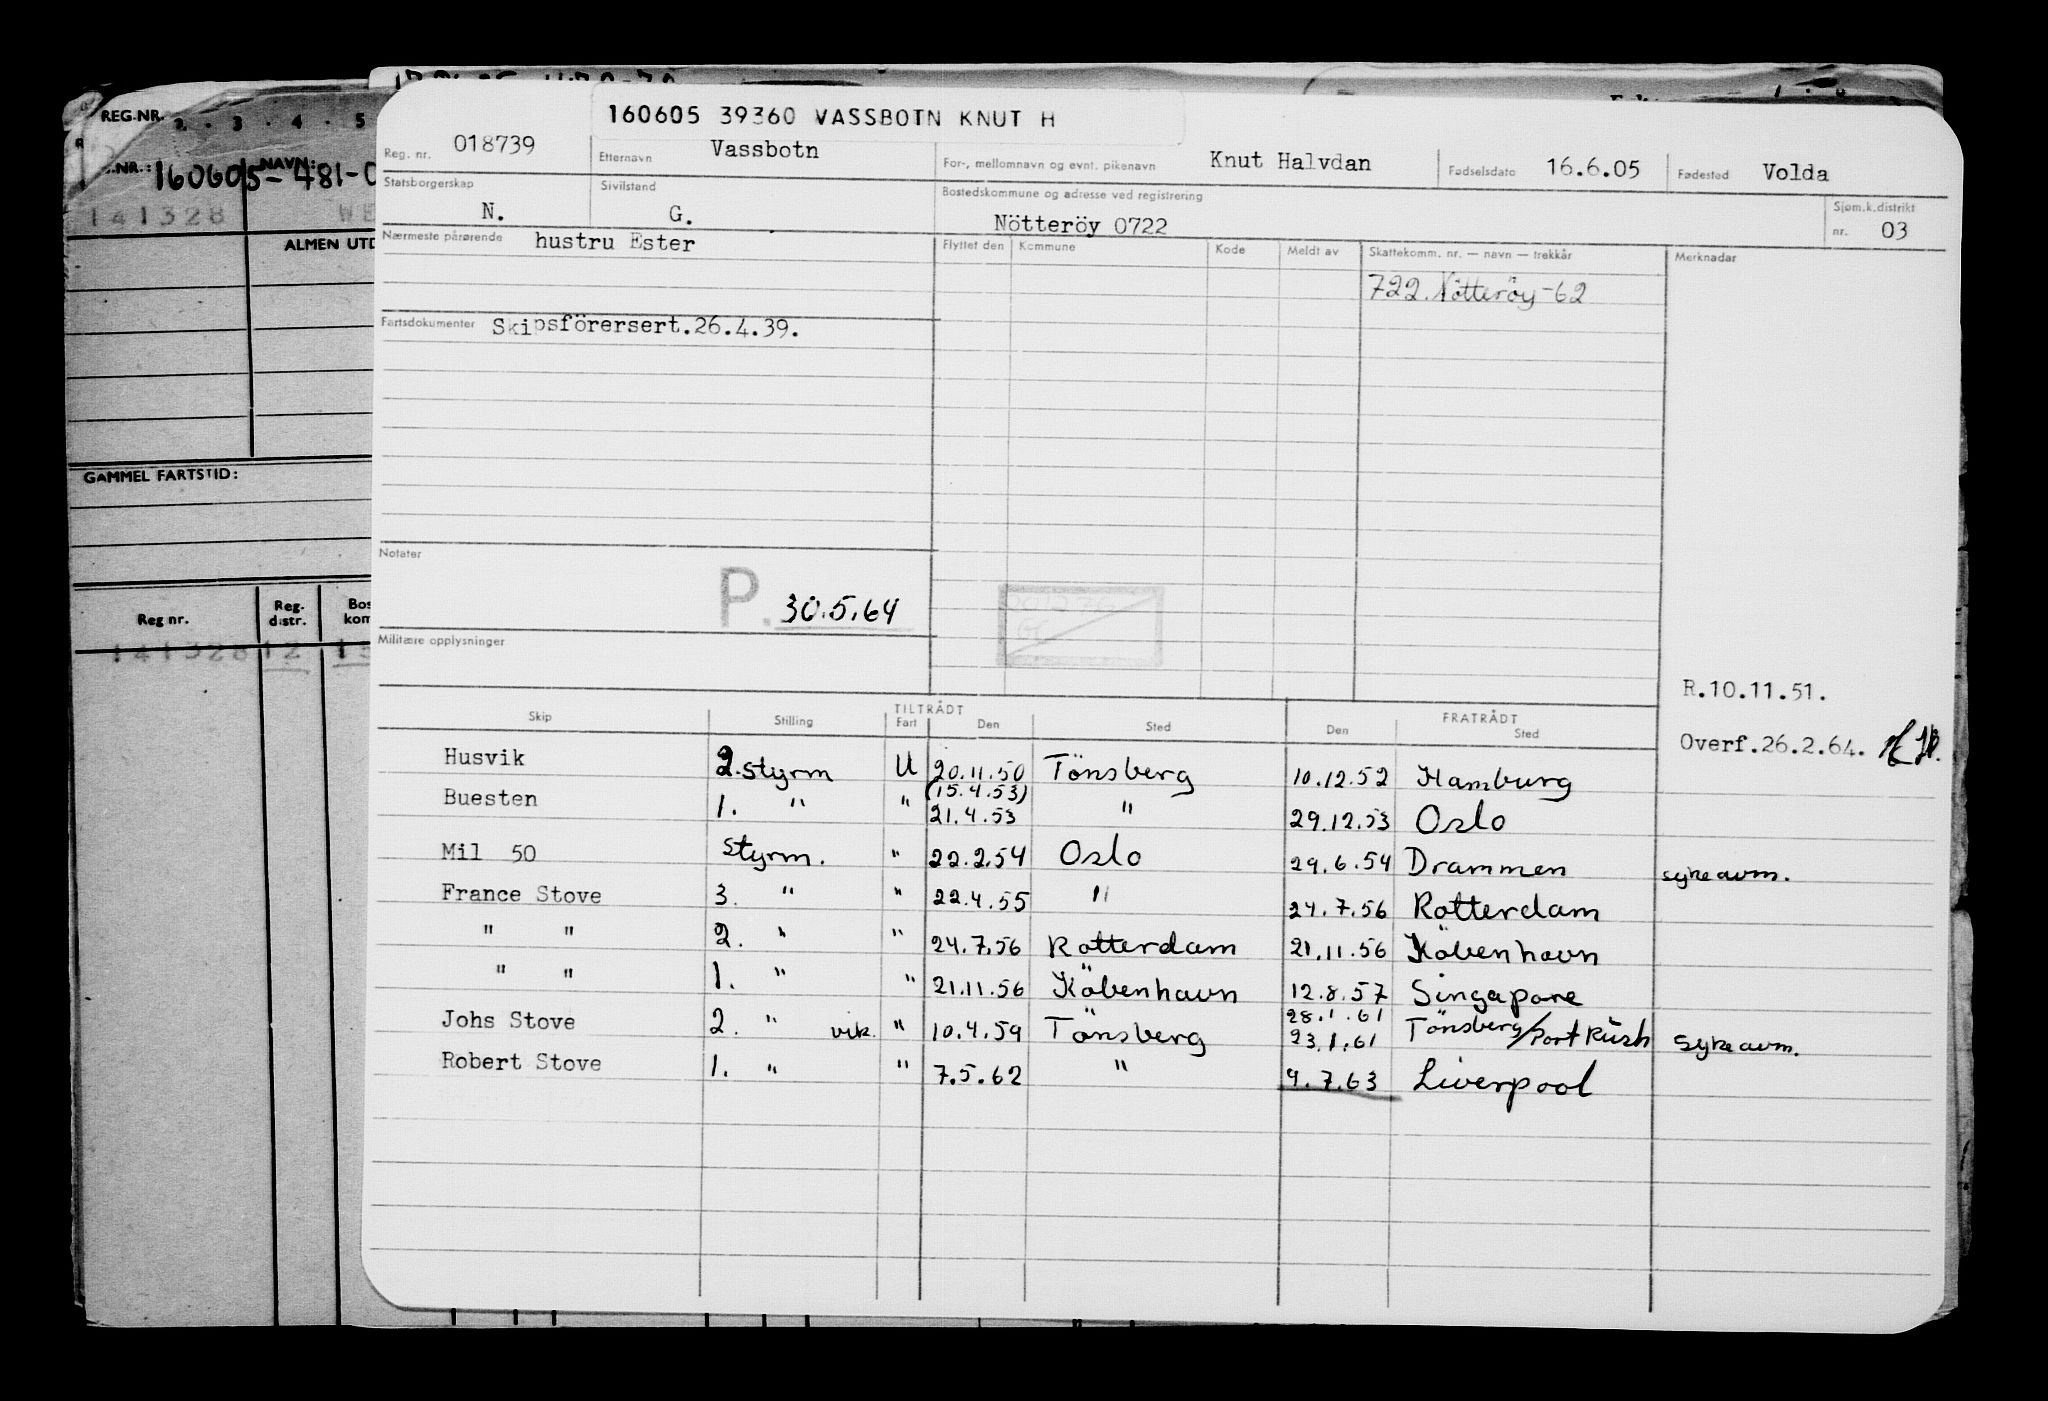 160605 39360 VASSBOTN KNUT H
Reg. nr. 018739 Etternavn Vassbotn For-, mellomnavn og evnt. pikenavn Knut Halvdan Fødselsdato 16.6.05 Fødested Volda
Statsborgerskap N. Sivilstand G. Bostedskommune og adresse ved registrering Nötteröy 0722 Sjøm.k.distrikt nr. 03
Nærmeste pårørende hustru Ester Flyttet den Kommune Kode Meldt av Skattekomm. nr. — navn — trekkår Merknadar
722. Nötteröy-62
Fartsdokumenter Skipsförersert.26.4.39.
Notater
P. 30.5.64
Militære opplysninger
R.10.11.51.
Overf.26.2.64.
TILTRÅDT FRATRÅDT
Skip Stilling Fart Den Sted Den Sted
Husvik 2.styrm U 20.11.50 Tönsberg 10.12.52 Hamburg
(15.4.53)
Buesten 1. " " 21.4.53 " 29.12.53 Oslo
Mil 50 styrm. " 22.2.54 Oslo 29.6.54 Drammen sykeavm.
France Stove 3. " " 22.4.55 " 24.7.56 Rotterdam
" " 2. " " 24.7.56 Rotterdam 21.11.56 Köbenhavn
" " 1. " " 21.11.56 Köbenhavn 12.8.57 Singapore
28.1.61
Johs Stove 2. " vik. " 10.4.59 Tönsberg 23.1.61 Tönsberg/Port Rush sykeavm.
Robert Stove 1. " " 7.5.62 " 9.7.63 Liverpool
REG.NR. 2 . 3 . 4 . 5
NR.: 160605-481-0 NAVN:
141328 WE
ALMEN UTD
GAMMEL FARTSTID:
Reg nr. Reg. distr. Bos kom
141328 12 15